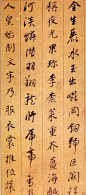 金生麗水玉出崑岡劍號巨闕珠
稱夜光果珍李柰菜重芥薑海鹹
河淡鱗潛羽翔龍師火帝鳥官
人皇始制文字乃服衣裳推位讓